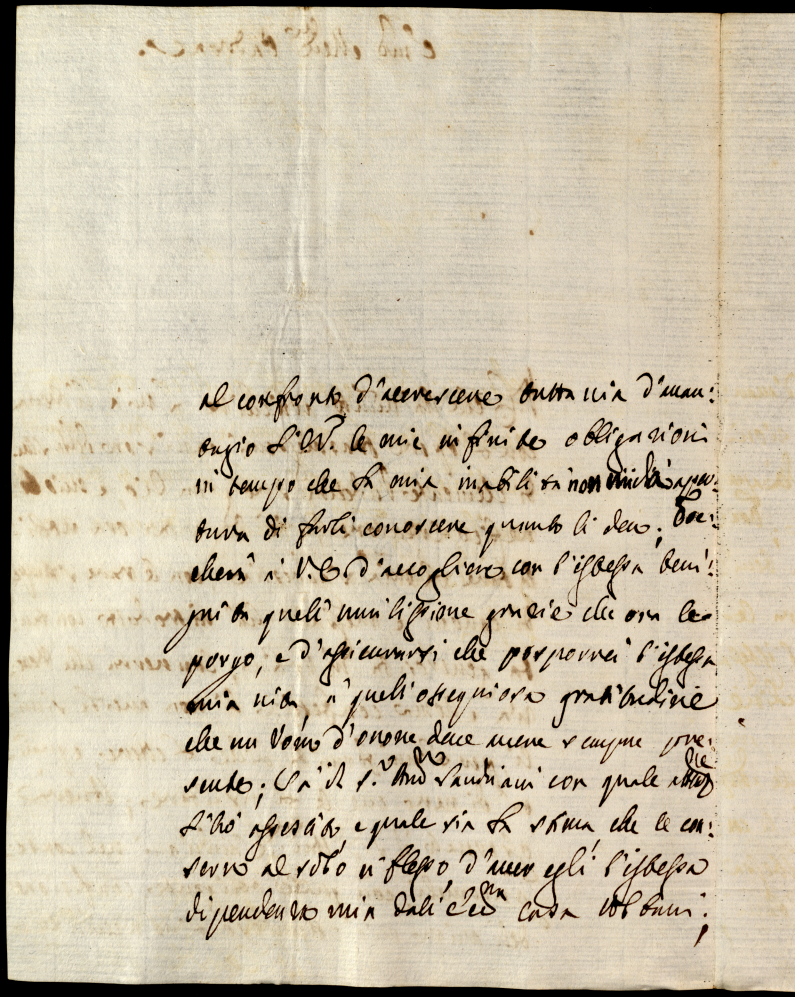 al confronto d'accrescere tutta via d'avan:
tagio L'E.V. le mie infinite obligazioni
in tempo che la mia inabilità non mi dà aper:
tura di farli conoscere quanto li devo; Toc:
cherà à V.E. d'accogliere con l'istessa beni:
gnità queli' umilissime grazie che ora le
porgo, e d'assicurarsi che posporrei l'istessa
mia vita, à queli' ossequiosa gratitudine
che un Uomo d'onore deve avere sempre pre:
sente; Sà il Sr. Andrea con quale
L'hò assistito, e quale sia la stima che le con:
servo al solo riflesso, d'aver egli l'istessa
dipendenza mia dali' casa